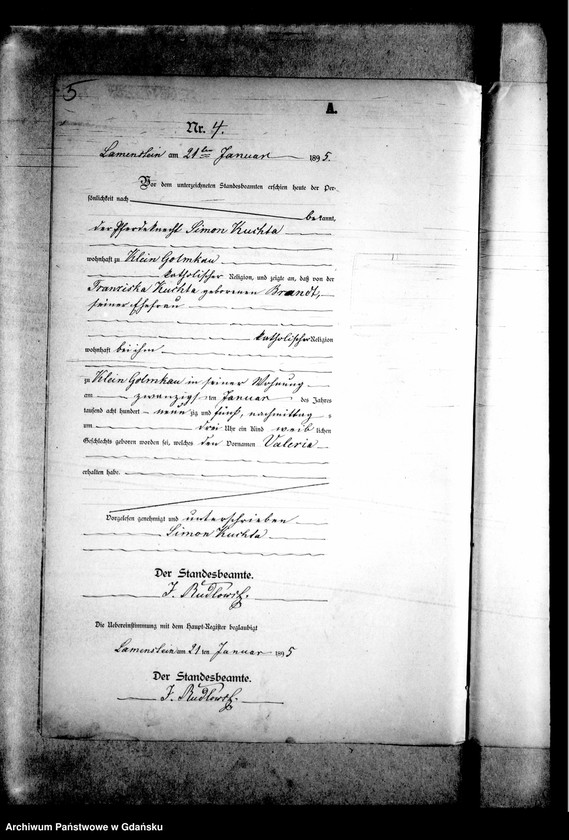 5
A.
Nr. 4.
Lamenstein am 21ten Januar 1895.
Vor dem unterzeichneten Standesbeamten erschien heute der Per-
sönlichkeit nach
bekannt,
der Pferdeknecht Simon Kuchta
wohnhaft zu Klein Golmkau
katholischer Religion, und zeigte an, daß von der
Franziska Kuchta geborenen Brandt,
seiner Ehefrau
katholischer Religion
wohnhaft bei ihm
zu Klein Golmkau in seiner Wohnung
am zwanzigsten Januar des Jahres
tausend acht hundert neunzig und fünf, nachmittag s
um drei Uhr ein Kind weiblichen
Geschlechts geboren worden sei, welches den Vornamen Valeria
erhalten habe.
Vorgelesen genehmigt und unterschrieben
Simon Kuchta
Der Standesbeamte.
Die Uebereinstimmung mit dem Haupt-Register beglaubigt
Lamenstein am 21 ten Januar 1895
Der Standesbeamte.
Archiwum Państwowe w Gdańsku